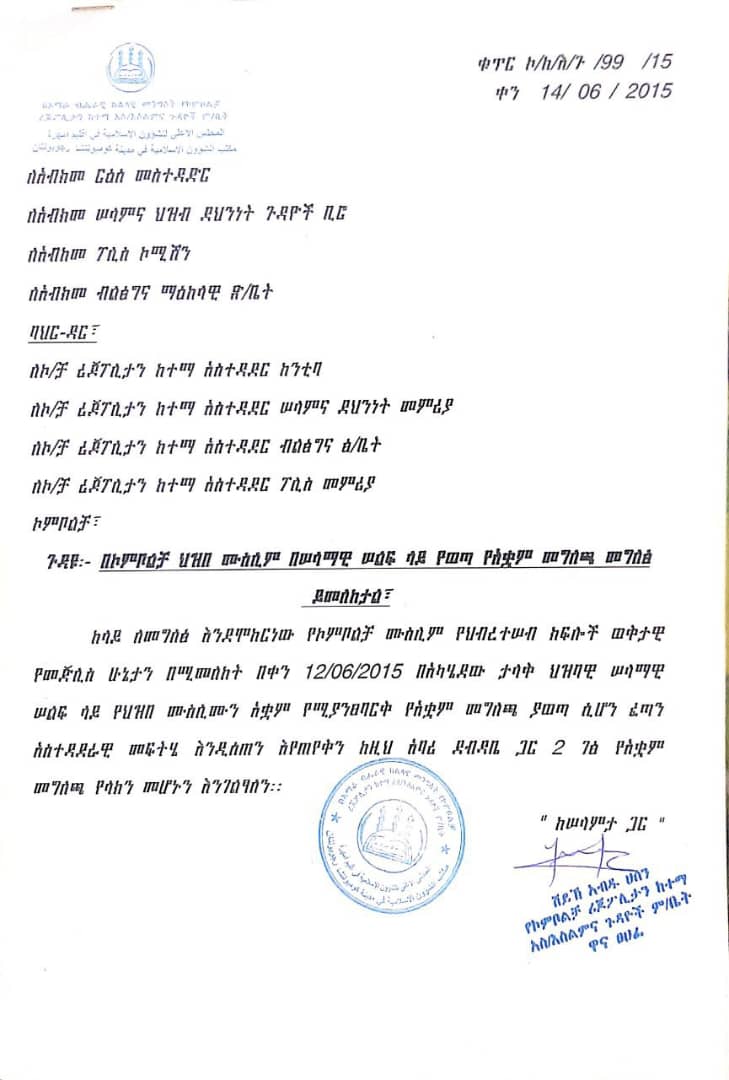 ቁጥር ኮ/ከ/ስ/ጉ /99 /15
ቀን 14/ 06 / 2015
በአማራ ብሔራዊ ክልላዊ መንግስት የኮምቦልቻ
ሪጆፖሊታን ከተማ እስ/እስልምና ጉዳዮች ም/ቤት
المجلس الاعلى للشؤون الاسلامية في اقليم امهرة
مكتب الشوون الاسلامية في مدينة كومبولتشا
ለአብክመ ርዕሰ መስተዳድር
ለአብክመ ሠላምና ህዝብ ደህንነት ጉዳዮች ቢሮ
ለአብክመ ፖሊስ ኮሚሽን
ለአብክመ ብልፅግና ማዕከላዊ ጽ/ቤት
ባህር-ዳር፣
ለኮ/ቻ ሪጆፖሊታን ከተማ አስተዳደር ከንቲባ
ለኮ/ቻ ሪጆፖሊታን ከተማ አስተዳደር ሠላምና ደህንነት መምሪያ
ለኮ/ቻ ሪጆፖሊታን ከተማ አስተዳደር ብልፅግና ፅ/ቤት
ለኮ/ቻ ሪጆፖሊታን ከተማ አስተዳደር ፖሊስ መምሪያ
ኮምቦልቻ፣
ጉዳዩ፡- በኮምቦልቻ ህዝበ ሙስሊም በሠላማዊ ሠልፍ ላይ የወጣ የአቋም መግለጫ መግለፅ
ይመለከታል፣
ከላይ ለመግለፅ እንደሞከርነው የኮምቦልቻ ሙስሊም የህብረተሠብ ክፍሎች ወቅታዊ
የመጅሊስ ሁኔታን በሚመለከት በቀን 12/06/2015 በአካሄደው ታላቅ ህዝባዊ ሠላማዊ
ሠልፍ ላይ የህዝበ ሙስሊሙን አቋም የሚያንፀባርቅ የአቋም መግለጫ ያወጣ ሲሆን ፈጣን
አስተዳደራዊ መፍትሄ እንዲሰጠን እየጠየቅን ከዚህ አባሪ ደብዳቤ ጋር 2 ገፅ የአቋም
መግለጫ የላክን መሆኑን እንገልፃለን፡፡
" ከሠላምታ ጋር "
ሸይኽ አብዱ ሀሰን
የኮምቦልቻ ሪጆፖሊታን ከተማ
እስ/እስልምና ጉዳዮች ም/ቤት
ዋና ፀሀፊ